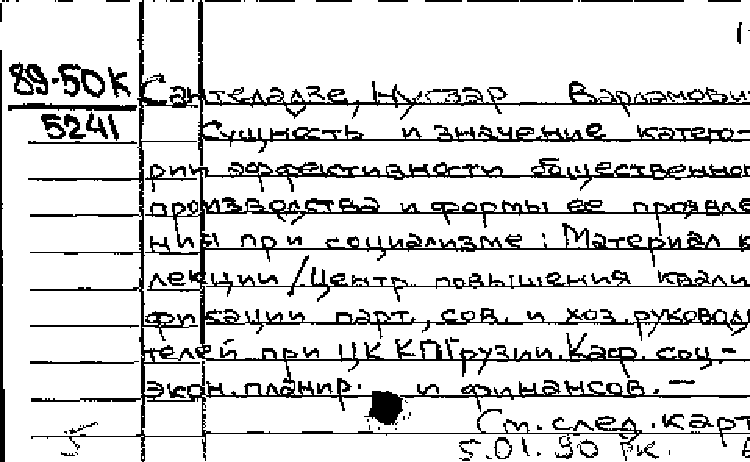 89-50К Сантеладзе, Нугзар Варламови
5241 Сущность и значение катего-
рии эффективности общественног
производства и формы ее проявле
ния при социализме: Материал к
лекции / Центр. повышения квали
фикации парт., сов. и хоз. руковод
телей при ЦК КП Грузии. Каф. соц.-
экон. планир. и финансов. —
См. след. карт
5.01.90 РК.